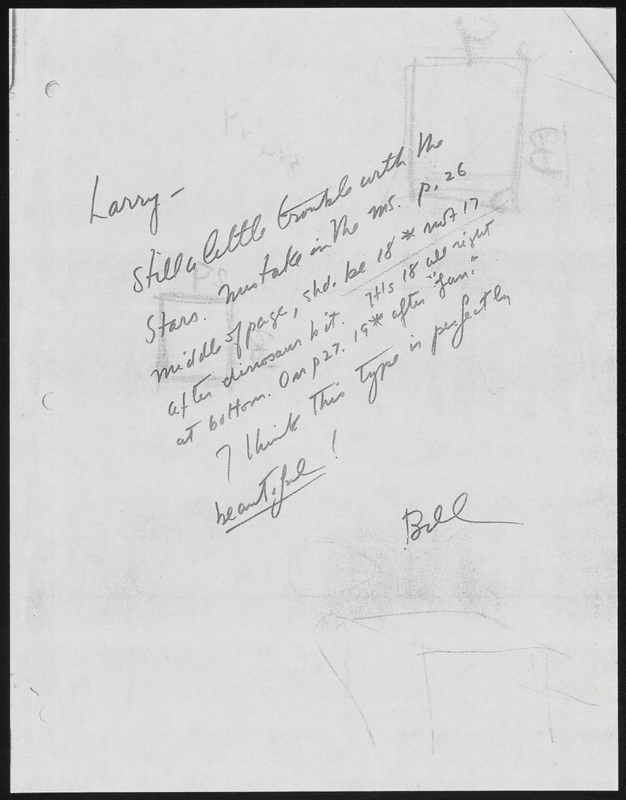 Larry –
Still a little trouble with the
Stars. Mistake in the ms. p. 26
middle of page, shd. be 18 * not 17
after dinosaur bit. It's 18 all right
at bottom. On p 27. 19* after "fan."
I think this type is perfectly
beautiful !
Bill